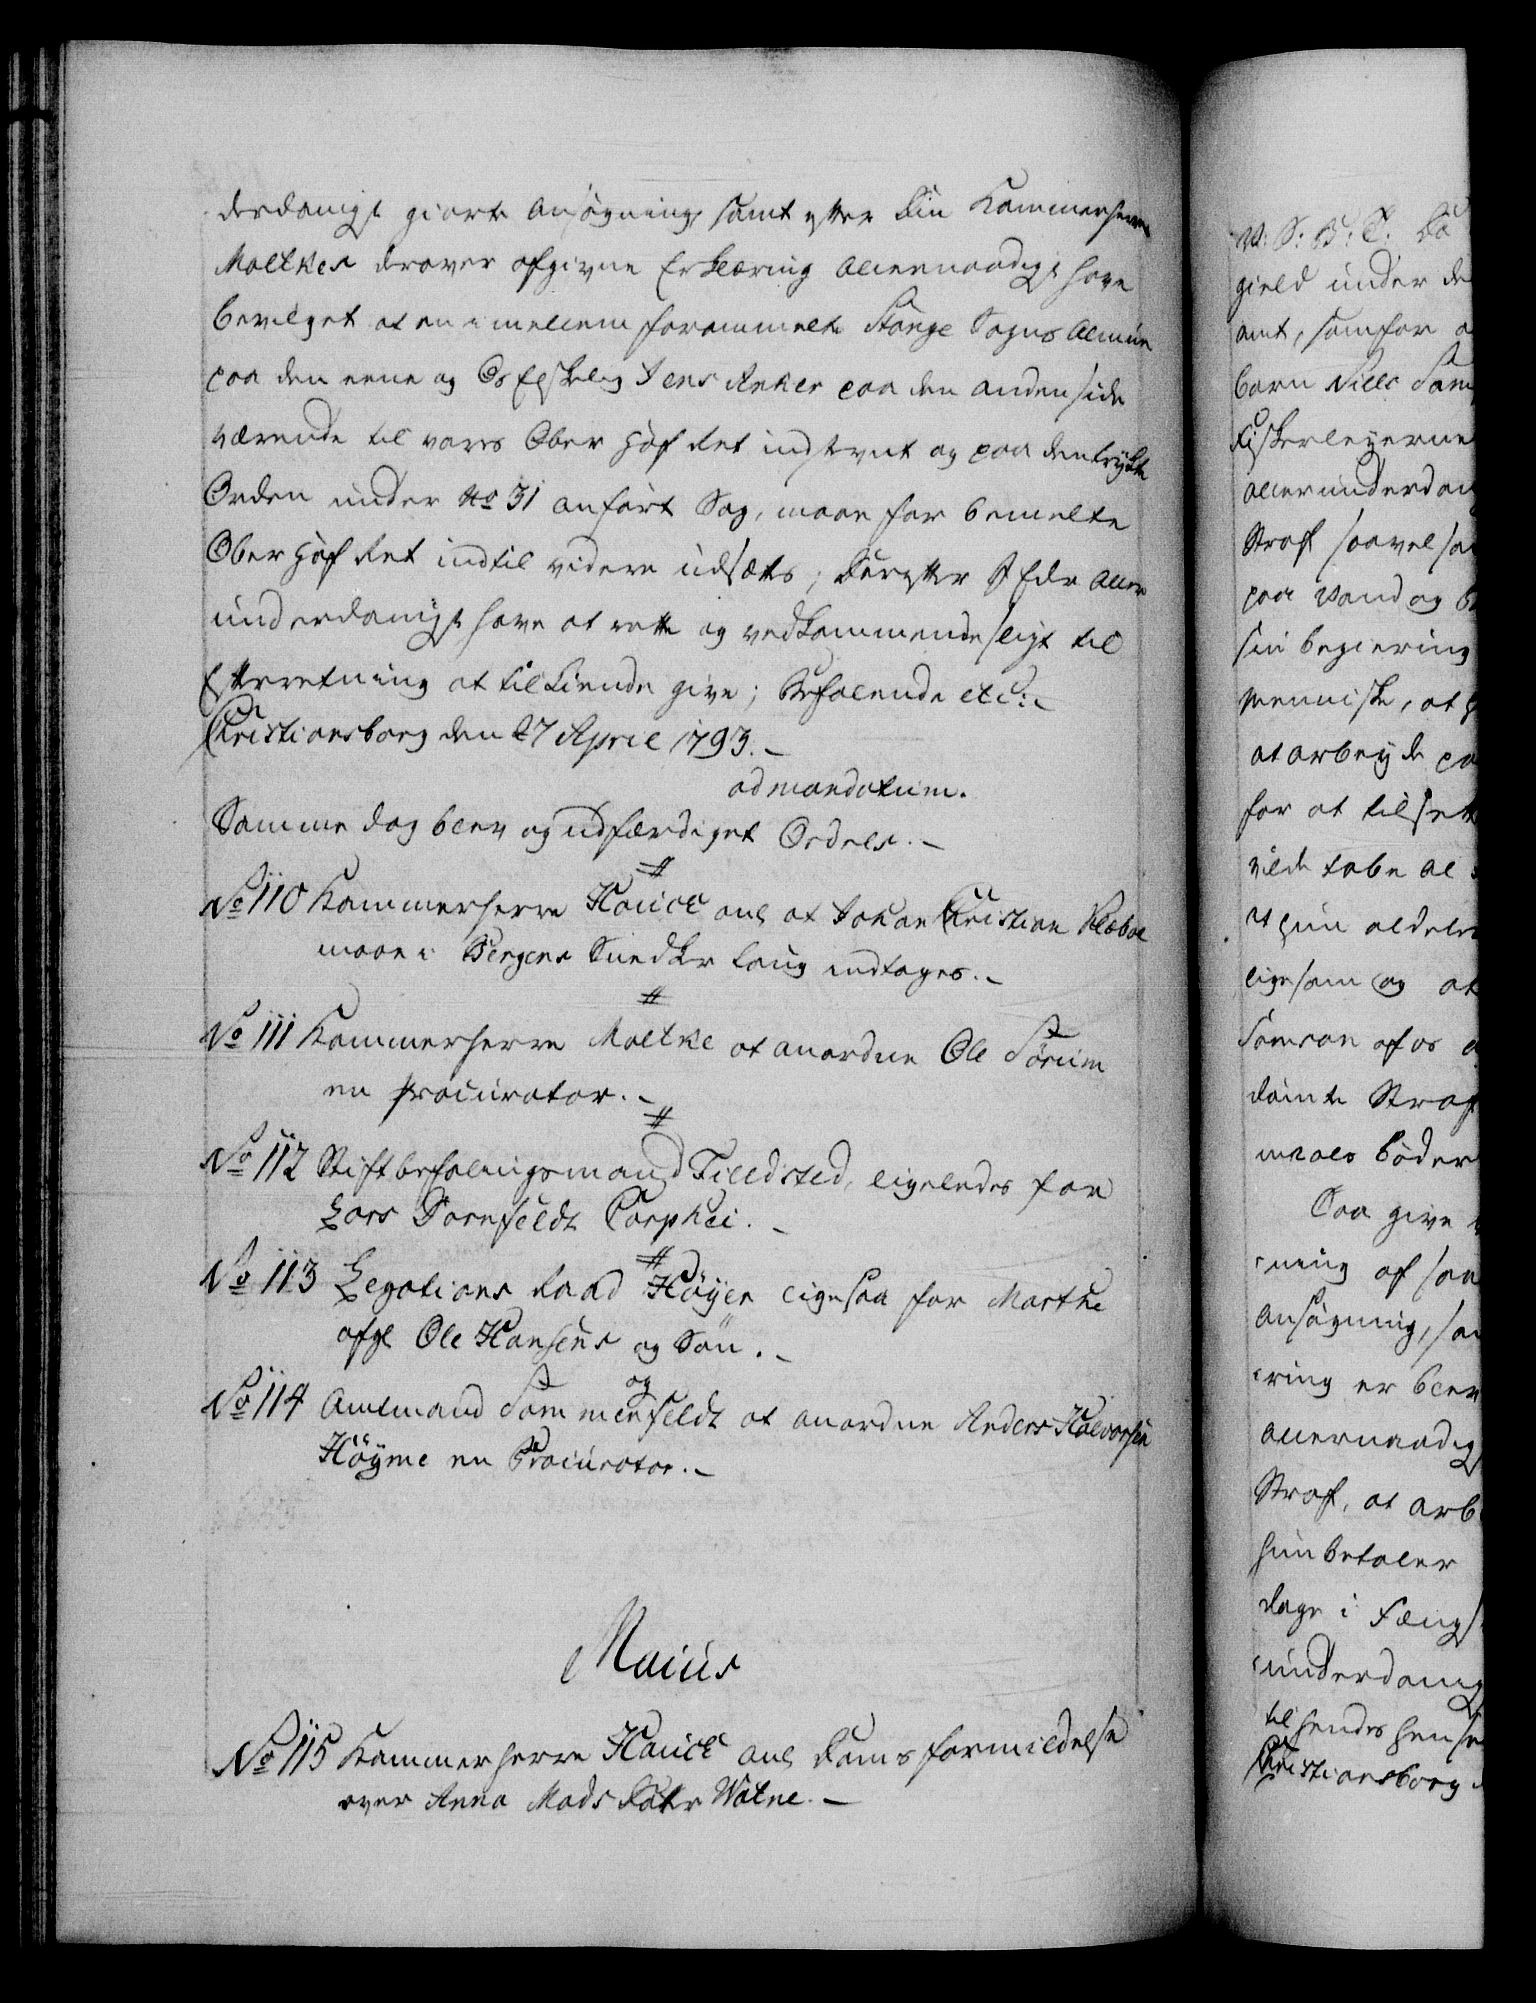 derdanigst giorte Ansøgning, samt efter Din Kammerherre
Moltkes derover afgivne Erklæring allernaadigst have
bevilget at en imellem forommelte Stange Sogns Almue
paa den eene og Os Elskelig Jens Anker paa den anden side
værende til vores Ober Hof Ret indstevnt og paa den trykte
Orden under No 31 anført Sag, maae for bemelte
Ober Hof Ret indtil videre udsættes; Derefter I Eder aller
underdanigst have at rette og vedkommende sligt til
Efterretning at tilkiende give; Befalende etc:
Christiansborg den 27 April 1793.
ad mandatum.
Samme dag blev og udfærdiget Ordrer.
No 110 Kammerherre Hauch anl at Johan Christian Klæboe
maae i Bergens Snedker Laug indtages.
No 111 Kammerherre Moltke at anordne Ole Sörum
en procurator.
No 112 Stiftbefalingsmand Fieldsted, ligeledes for
Lars Dornfeldt Corphei.
No 113 Legations Raad Höyer ligesaa for Marthe
afgl Ole Hansens og Søn.
og
No 114 Amtmand Sommerfeldt at anordne Anders Halvorsen
Höyme en Procurator.
Maius
No 115 Kammerherre Hauch anl Doms formildelse
over Anna Mads Datr Watne.
V: S: B: T: Da
gield under de
amt, somfor
barn Niels Sam
Fiskerleyerne
allerunderdan
Straf saavel so
paa Vand og B
sin begiering
Menniske, at
at arbeyde pa
for at tilsette
vilde tabe al
at hun aldeles
ligesom og at
Samson af os
dømte Straf
maals bøder
Saa give
ning af saa
Ansøgning, sa
ring er blev
allernaadig
Straf, at arb
hun betaler
dage i Fængs
underdanig
til hendes hense
Christiansborg